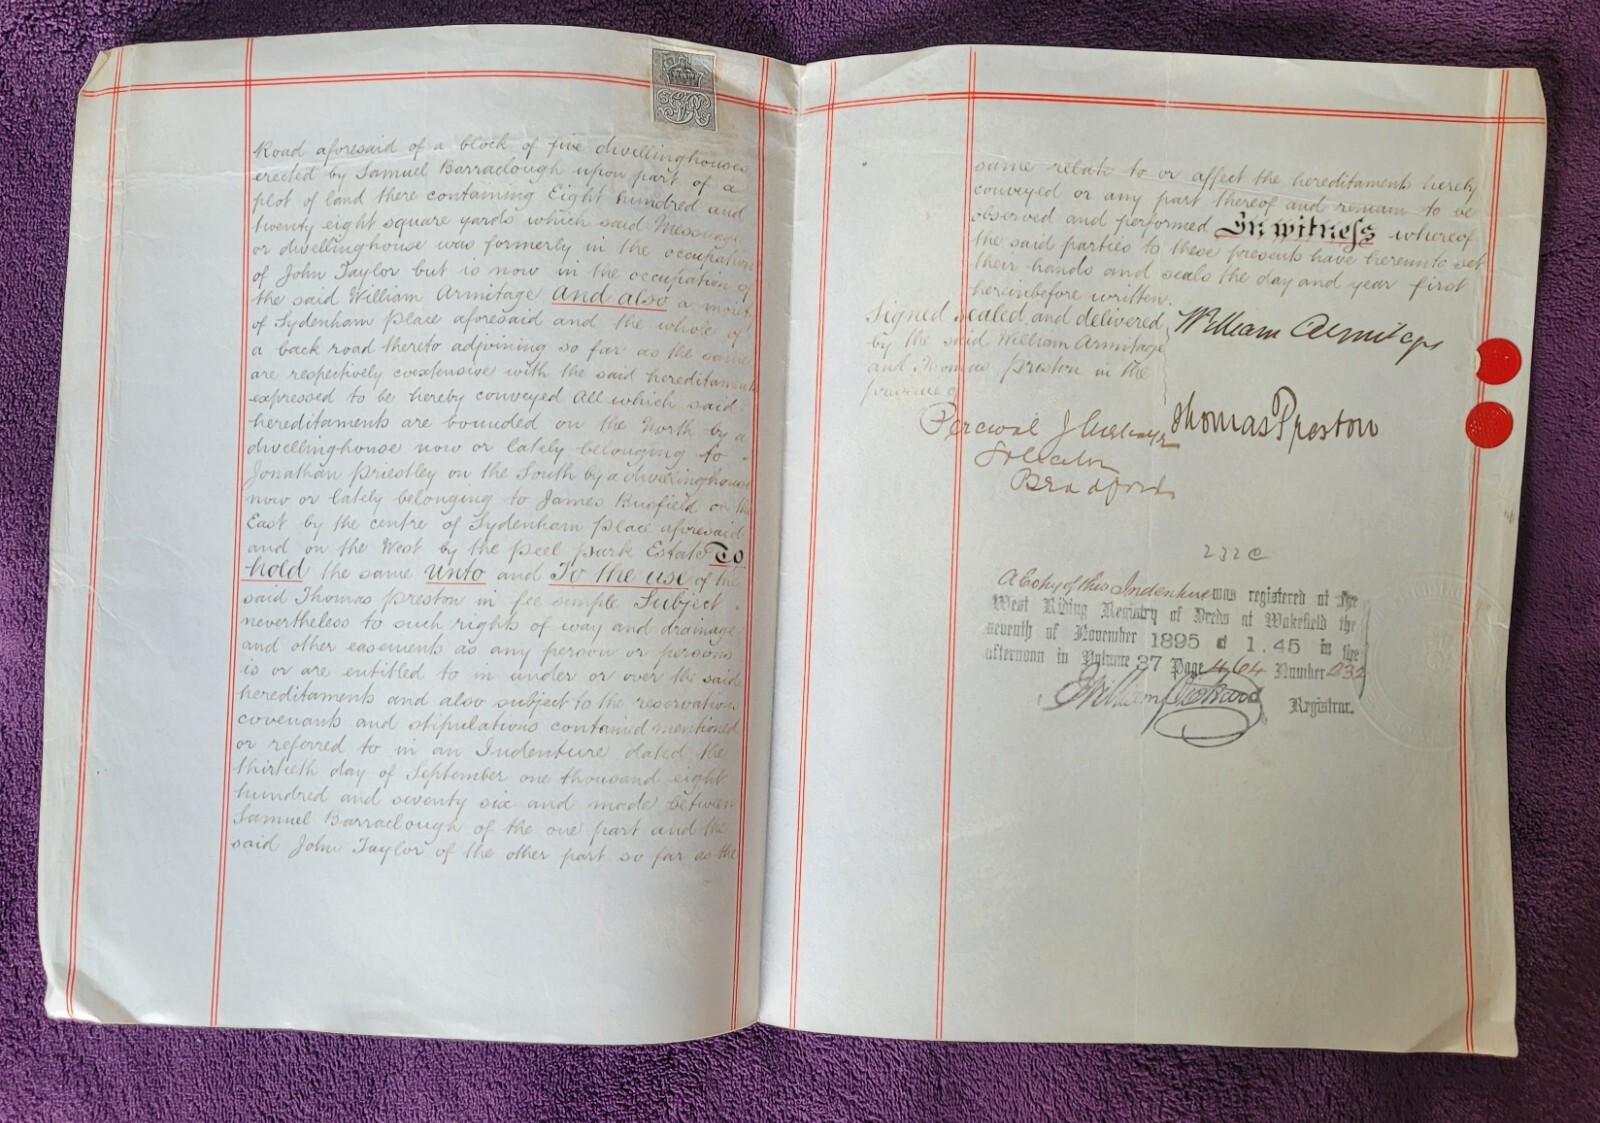 Road aforesaid of a block of five dwellinghouses
erected by Samuel Barraclough upon part of a
plot of land there containing Eight hundred and
twenty eight square yards which said Messuage
or dwellinghouse was formerly in the occupation
of John Taylor but is now in the occupation of
the said William Armitage And also a moiety
of Sydenham Place aforesaid and the whole of
a back road thereto adjoining so far as the same
are respectively coextensive with the said hereditaments
expressed to be hereby conveyed All which said
hereditaments are bounded on the North by a
dwellinghouse now or lately belonging to
Jonathan Priestley on the South by a dwellinghouse
now or lately belonging to James on the
East by the centre of Sydenham Place aforesaid
and on the West by the Peel Park Estate To
hold the same Unto and To the use of the
said Thomas Preston in fee simple Subject
nevertheless to such rights of way and drainage
and other easements as any person or persons
is or are entitled to in under or over the said
hereditaments and also subject to the reservations
covenants and stipulations contained mentioned
or referred to in an Indenture dated the
thirtieth day of September one thousand eight
hundred and seventy six and made between
Samuel Barraclough of the one part and the
said John Taylor of the other part so far as the
same relate to or affect the hereditaments hereby
conveyed or any part thereof and remain to be
observed and performed In witness whereof
the said parties to these presents have hereunto set
their hands and seals the day and year first
hereinbefore written.
Signed sealed and delivered
by the said William Armitage
and Thomas Preston in the
presence of
William Armitage
Thomas Preston
Percival J
Solicitor
Bradford
A Copy of this Indenture was registered at the
West Riding Registry of Deeds at Wakefield the
seventh of November 1895 at 1.45 in the
afternoon in Volume 37 Page 464 Number 232
William
Registrar.